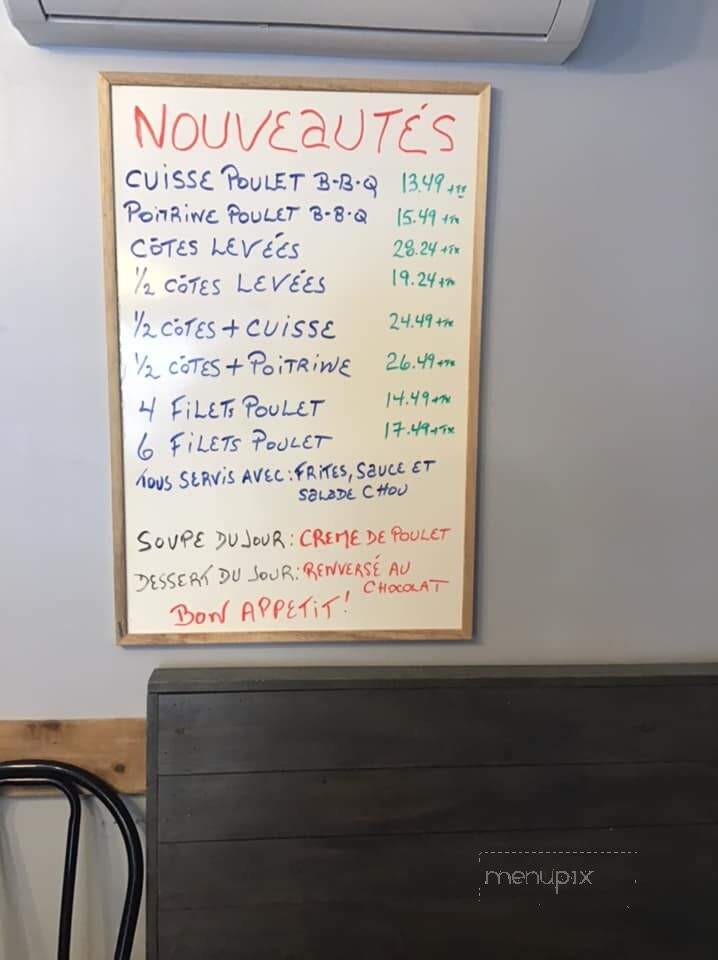 NOUVEAUTÉS
CUISSE POULET B-B-Q 13.49 +TX
POITRINE POULET B-B-Q 15.49 +TX
CÔTES LEVÉES 28.24 +TX
1/2 CÔTES LEVÉES 19.24 +TX
1/2 CÔTES + CUISSE 24.49 +TX
1/2 CÔTES + POITRINE 26.49 +TX
4 FILETS POULET 14.49 +TX
6 FILETS POULET 17.49 +TX
TOUS SERVIS AVEC: FRITES, SAUCE ET
SALADE CHOU
SOUPE DU JOUR: CREME DE POULET
DESSERT DU JOUR: RENVERSÉ AU
CHOCOLAT
BON APPETIT!
menupix